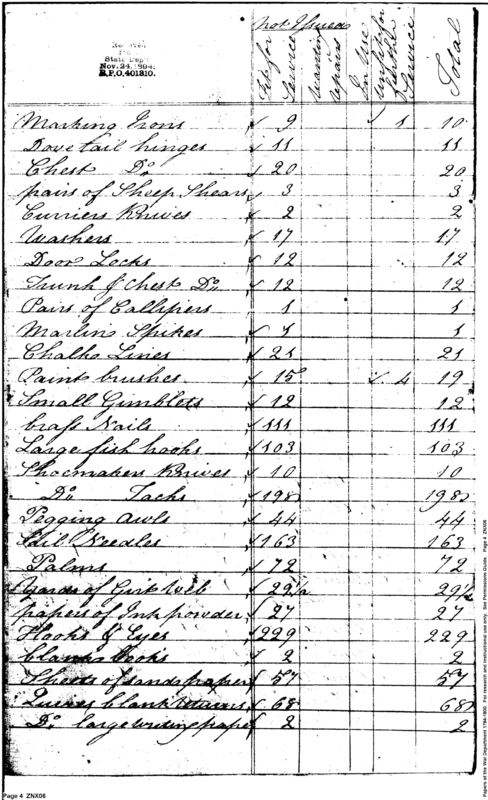 Received
from
State Dept
Nov. 24. 1894:
R.P.O. 401810.
not Issued
Fit for Service
Wanting repairs
In Use
Unfit for Service
Total
Marking Irons 9 1 10
Dove tail hinges 11 11
Chest Do 20 20
pairs of Sheep Shears 3 3
Curriers Knives 2 2
Washers 17 17
Door Locks 12 12
Trunk & Chest Do 12 12
Pairs of Callipers 1 1
Marlin Spikes 1 1
Chalke Lines 21 21
Paint brushes 15 4 19
Small Gimblets 12 12
brass Nails 111 111
Large fish hooks 103 103
Shoemakers Knives 10 10
Do Tacks 198 198
Pegging Awls 44 44
Sail Needles 163 163
Palms 72 72
Yards of Girt Web 29½ 29½
papers of Ink powder 27 27
Hooks & Eyes 229 229
blank books 2 2
Sheets of sand paper 57 57
Quires blank returns 68 68
Do large writing paper 2 2
Page 4 ZNX06
Papers of the War Department 1784-1800. For research and instructional use only. See Permissions Guide. Page 4 ZNX06